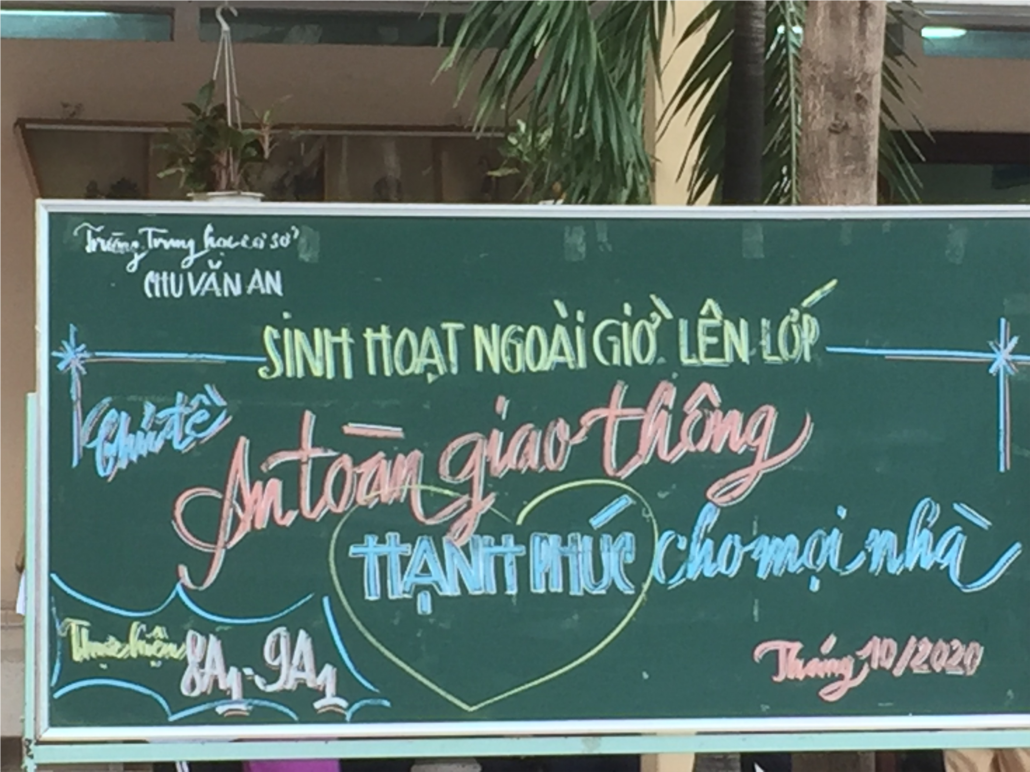 Trường Trung học cơ sở
CHU VĂN AN
SINH HOẠT NGOÀI GIỜ LÊN LỚP
Chủ đề
An toàn giao thông
HẠNH PHÚC cho mọi nhà
Thực hiện 8A1 - 9A1
Tháng 10/2020